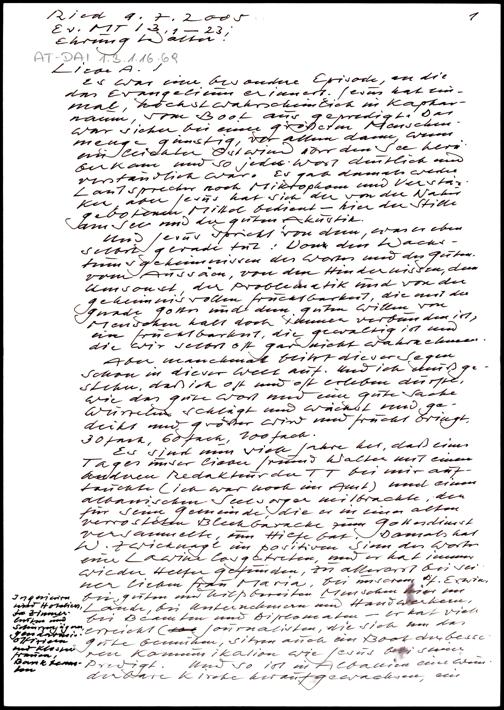 Ried 9.7.2005
1
Ev. MT 13,1-23
Ehrung Walter!
AT-DAI 1.3.1.16.69
Liebe A.!
Es war eine besondere Episode, an die
das Evangelium erinnert. Jesus hat ein-
mal, höchstwahrscheinlich in Kaphar-
naum, vom Boot aus gepredigt. Das
war sicher bei einer größeren Menschen-
menge günstig, vor allem dann, wenn
ein leichter Ostwind über den See herü-
berkam und so jedes Wort deutlich und
verständlich war. Es gab damals weder
Lautsprecher noch Mikrophon und Verstär-
ker, aber Jesus hat sich der von der Natur
gebotenen Mittel bedient – hier der Stille
am See und der guten Akustik.
Und Jesus spricht von dem, was er eben
selbst gerade tut: Von den Wachs-
tumsgeheimnissen des Wortes und des Guten.
vom Aussäen, von den Hindernissen, dem
Umsonst, der Problematik und von der
geheimnisvollen Fruchtbarkeit, die mit der
Gnade Gottes und dem guten Willen von
Menschen halt doch immer verbunden ist,
ein Fruchtbarkeit, die gewaltig ist und
die wir selbst oft gar nicht wahrnehmen.
Aber manchmal blitzt dieser Segen
schon in dieser Welt auf. Und ich muß ge-
stehen, daß ich oft und oft erleben durfte,
wie das gute Wort und eine gute Sache
Wurzeln schlägt und wächst und ge-
deiht und größer wird und Frucht bringt.
30fach, 60fach, 100fach.
Es sind nun viele Jahre her, daß eines
Tages unser lieber Freund Walter mit einem
anderen Redakteur der TT bei mir auf-
tauchte (ich war noch im Amt) und einen
albanischen Seelsorger mitbrachte, der
für seine Gemeinde, die er in einer alten
verrosteten Blechbaracke zum Gottesdienst
versammelte, um Hilfe bat. Damals hat
W. Zwicknagl im positiven Sinn des Wortes
eine Lawine losgetreten und er hat immer
wieder Helfer gefunden, zu allererst bei sei-
ner lieben Frau Maria, bei unserem Erwin,
bei guten und hilfsbereiten Menschen
Lande, bei Unternehmern und Handwerkern,
bei Beamten und Diplomaten – er hat viel
erreicht Journalisten, die sich um das
Gute bemühen, sitzen auch im Boot der besse-
ren Kommunikation wie Jesus bei seiner
Predigt. Und so ist in Albanien eine wun-
derbare Kirche heraufgewachsen, ein
Ingenieuren
und
und